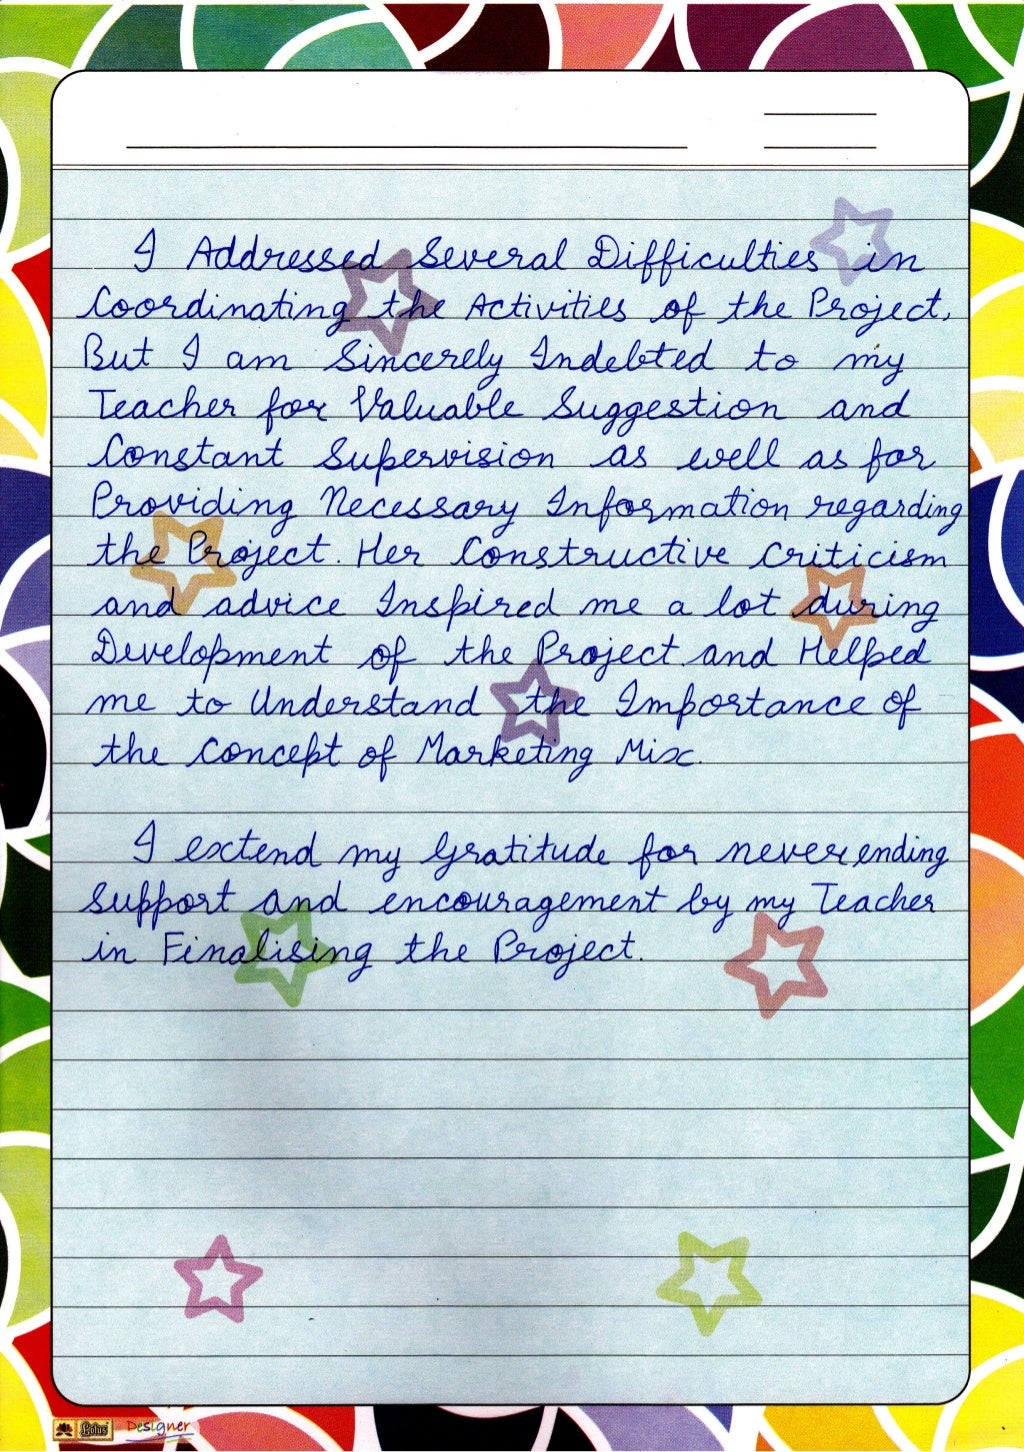 I Addressed Several Difficulties in
Coordinating the Activities of the Project,
But I am Sincerely Indebted to my
Teacher for Valuable Suggestion and
Constant Supervision as well as for
Providing Necessary Information regarding
the Project. Her Constructive Criticism
and advice Inspired me a lot during
Development of the Project and Helped
me to Understand the Importance of
the Concept of Marketing Mix.
I extend my Gratitude for never ending
Support and encouragement by my Teacher
in Finalising the Project.
Lotus Designer